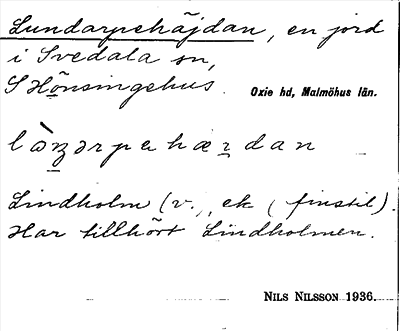 Lundarpehäjdan, en jord
i Svedala sn,
S Hönsingehus. Oxie hd, Malmöhus län.
Lindholm (v., ek (finstil).
Har tillhört Lindholmen.
NILS NILSSON 1936.